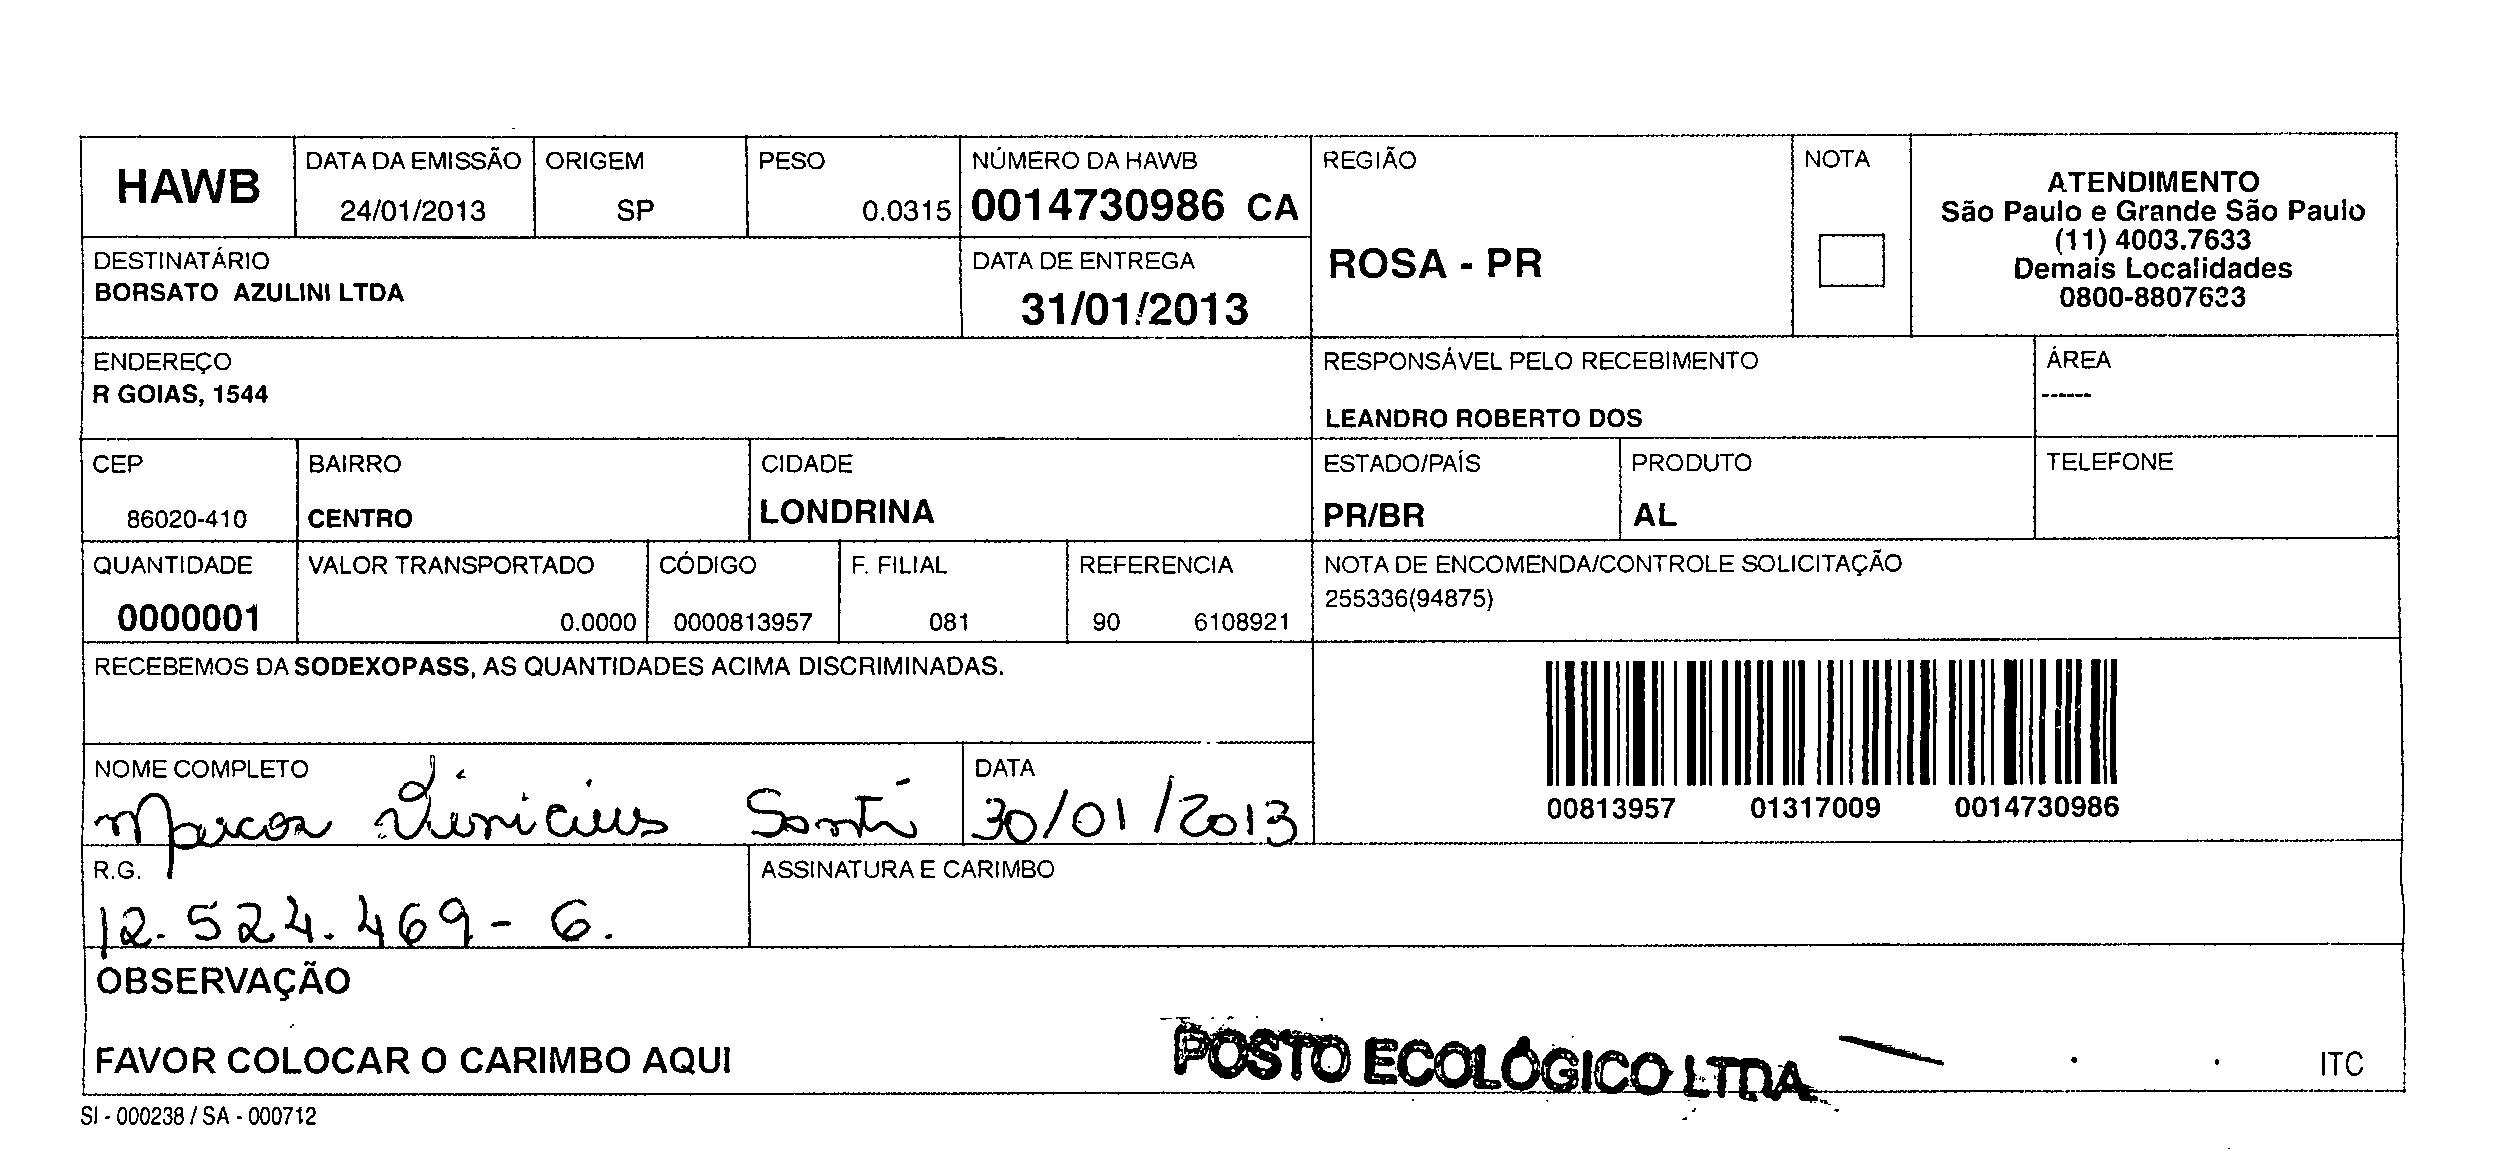 HAWB
DATA DA EMISSÃO
24/01/2013
ORIGEM
SP
PESO
0.0315
NÚMERO DA HAWB
0014730986 CA
REGIÃO
ROSA - PR
NOTA
ATENDIMENTO
São Paulo e Grande São Paulo
(11) 4003.7633
Demais Localidades
0800-8807633
DESTINATÁRIO
BORSATO AZULINI LTDA
DATA DE ENTREGA
31/01/2013
ENDEREÇO
R GOIAS, 1544
RESPONSÁVEL PELO RECEBIMENTO
LEANDRO ROBERTO DOS
ÁREA
------
CEP
86020-410
BAIRRO
CENTRO
CIDADE
LONDRINA
ESTADO/PAÍS
PR/BR
PRODUTO
AL
TELEFONE
QUANTIDADE
0000001
VALOR TRANSPORTADO
0.0000
CÓDIGO
0000813957
F. FILIAL
081
REFERENCIA
90 6108921
NOTA DE ENCOMENDA/CONTROLE SOLICITAÇÃO
255336(94875)
RECEBEMOS DA SODEXOPASS, AS QUANTIDADES ACIMA DISCRIMINADAS.
00813957 01317009 0014730986
NOME COMPLETO
Marcos Vinicius Santi
DATA
30/01/2013
R.G.
12.524.469-6.
ASSINATURA E CARIMBO
OBSERVAÇÃO
FAVOR COLOCAR O CARIMBO AQUI
POSTO ECOLÓGICO LTDA
ITC
SI - 000238 / SA - 000712